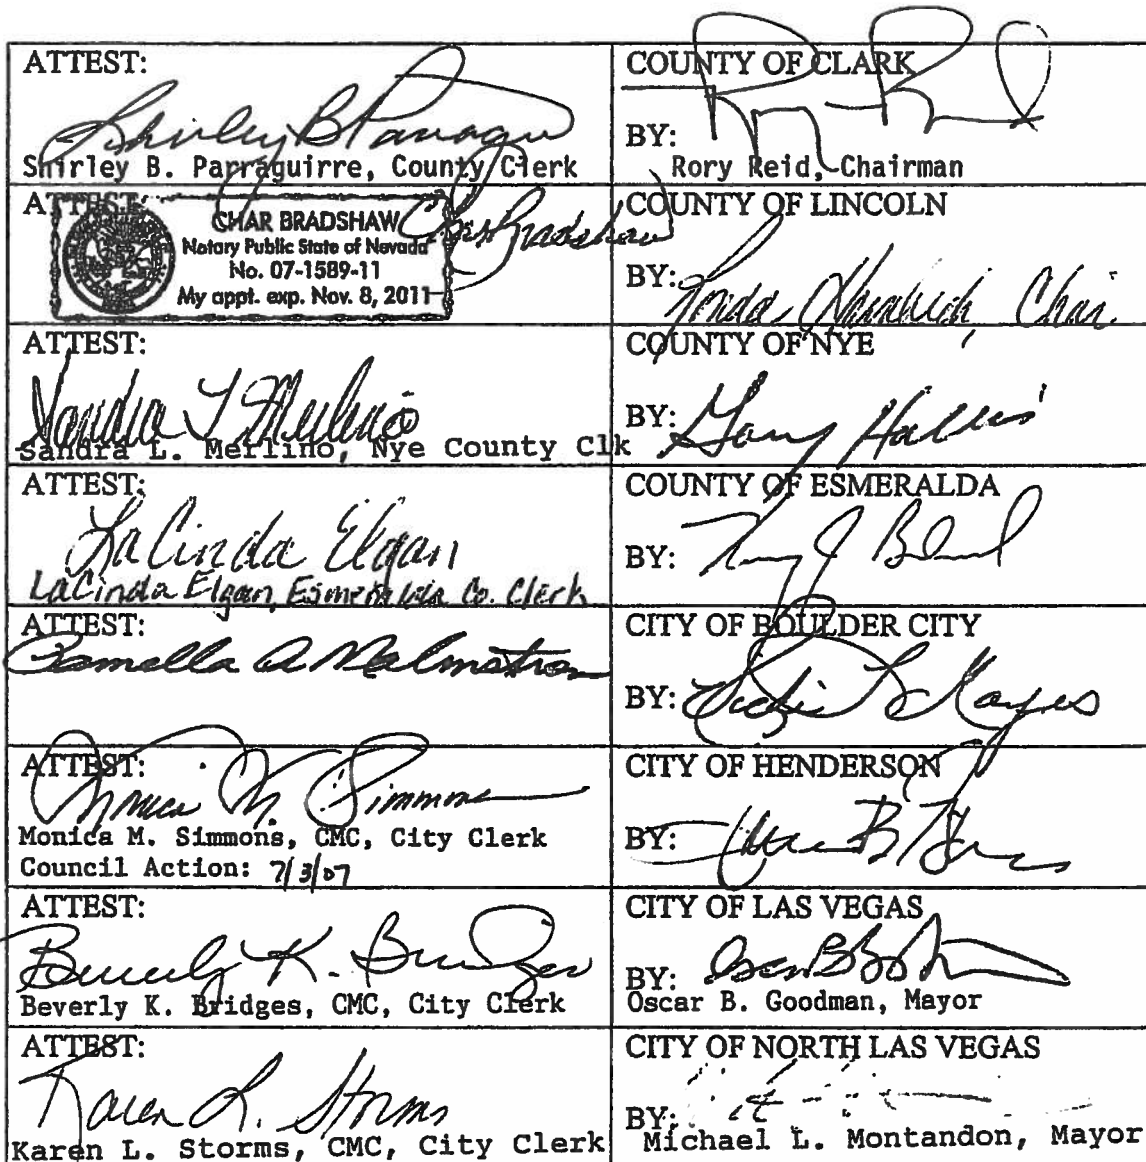 ATTEST:
Shirley B Parraguirre
Shirley B. Parraguirre, County Clerk
COUNTY OF CLARK
BY:
Rory Reid, Chairman
ATTEST:
CHAR BRADSHAW
Notary Public State of Nevada
No. 07-1589-11
My appt. exp. Nov. 8, 2011
Char Bradshaw
COUNTY OF LINCOLN
BY: Ronda Chair
ATTEST:
Sandra L Merlino
Sandra L. Merlino, Nye County Clk
COUNTY OF NYE
BY: Gary Hollis
ATTEST:
LaCinda Elgan
LaCinda Elgan, Esmeralda Co. Clerk
COUNTY OF ESMERALDA
BY:
ATTEST:
Pamella A Malmstrom
CITY OF BOULDER CITY
BY:
ATTEST:
Monica M. Simmons
Monica M. Simmons, CMC, City Clerk
Council Action: 7/3/07
CITY OF HENDERSON
BY:
ATTEST:
Beverly K. Bridges
Beverly K. Bridges, CMC, City Clerk
CITY OF LAS VEGAS
BY:
Oscar B. Goodman, Mayor
ATTEST:
Karen L. Storms
Karen L. Storms, CMC, City Clerk
CITY OF NORTH LAS VEGAS
BY:
Michael L. Montandon, Mayor